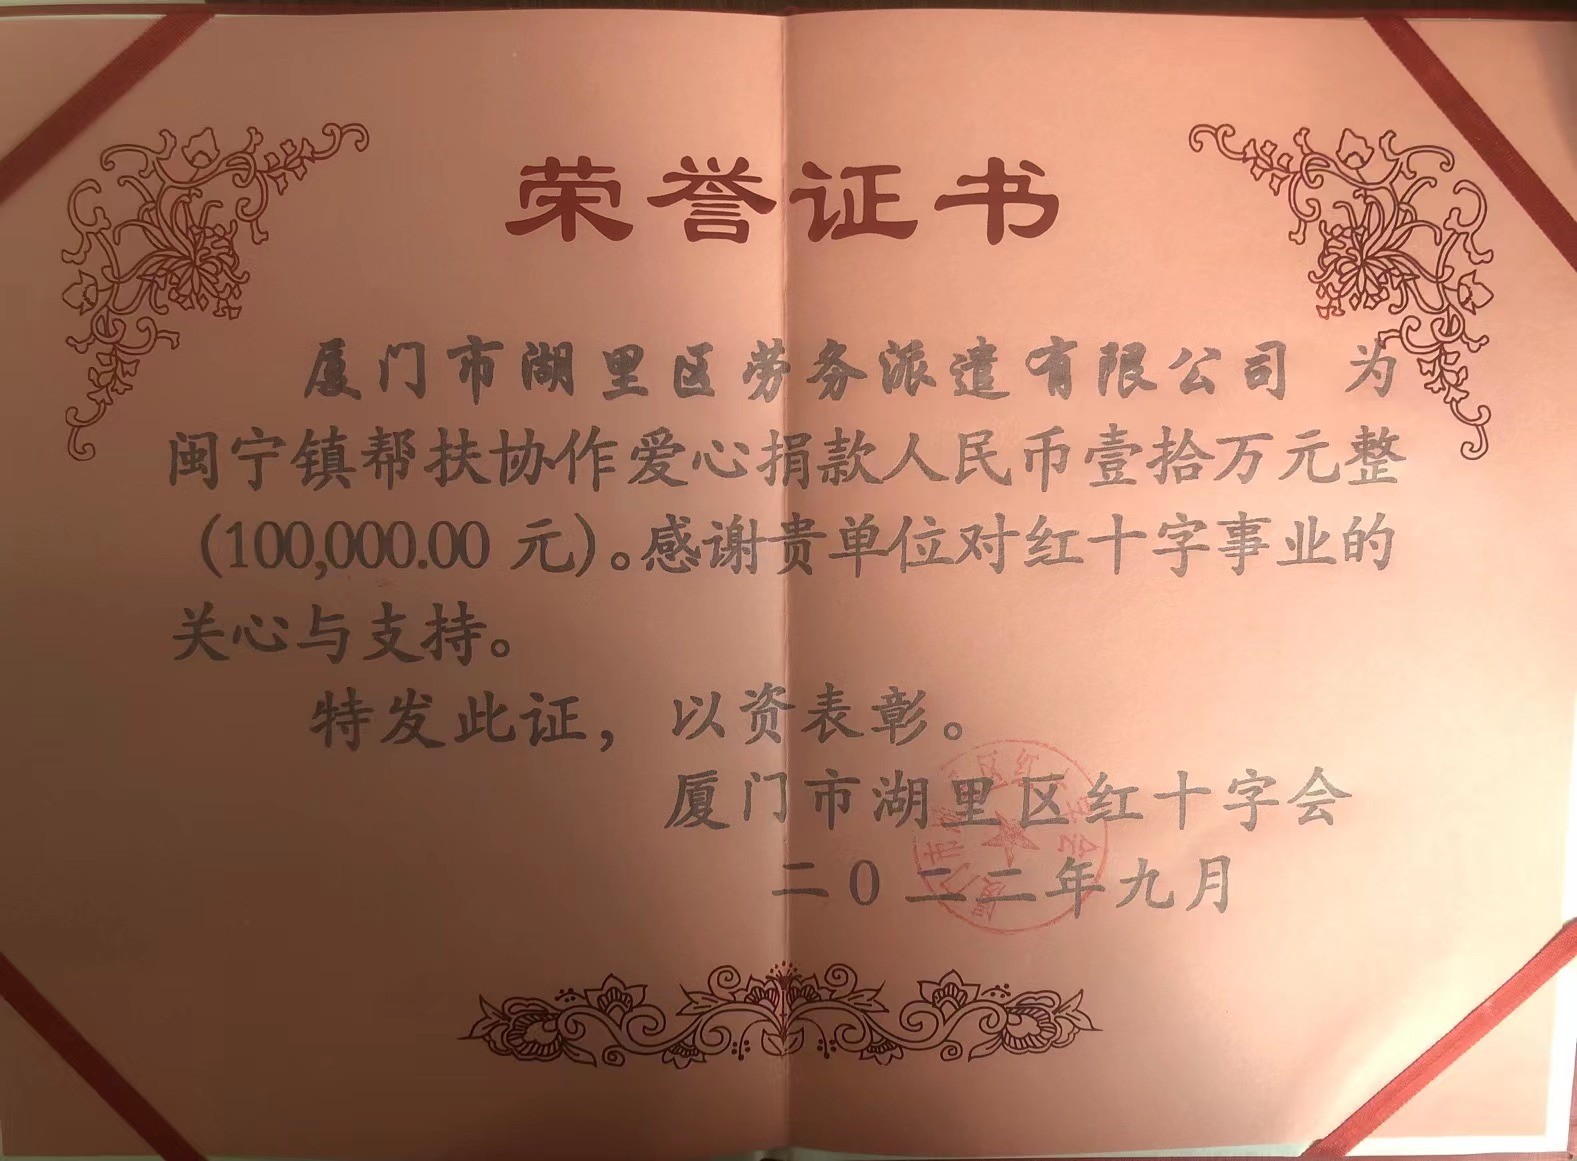 荣誉证书
厦门市湖里区劳务派遣有限公司 为
闽宁镇帮扶协作爱心捐款人民币壹拾万元整
（100,000.00 元）。感谢贵单位对红十字事业的
关心与支持。
特发此证，以资表彰。
厦门市湖里区红十字会
二0二二年九月
厦门市湖里区红十字会